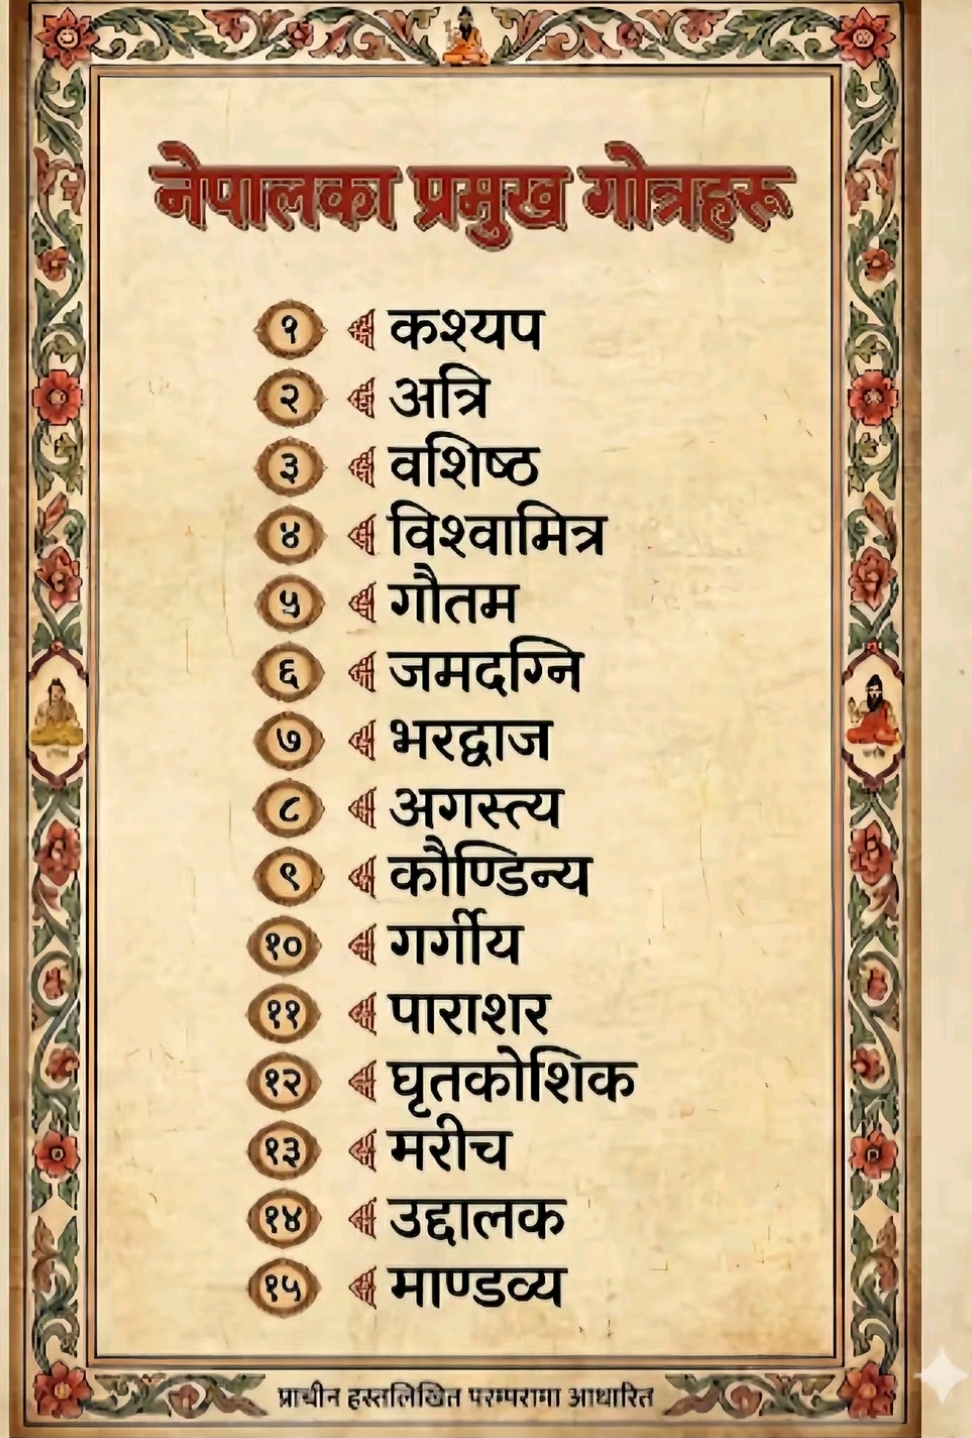 नेपालका प्रमुख गोत्रहरू
१ कश्यप
२ अत्रि
३ वशिष्ठ
४ विश्वामित्र
५ गौतम
६ जमदग्नि
७ भरद्वाज
८ अगस्त्य
९ कौण्डिन्य
१० गर्गीय
११ पाराशर
१२ घृतकोशिक
१३ मरीच
१४ उद्दालक
१५ माण्डव्य
प्राचीन हस्तलिखित परम्परामा आधारित